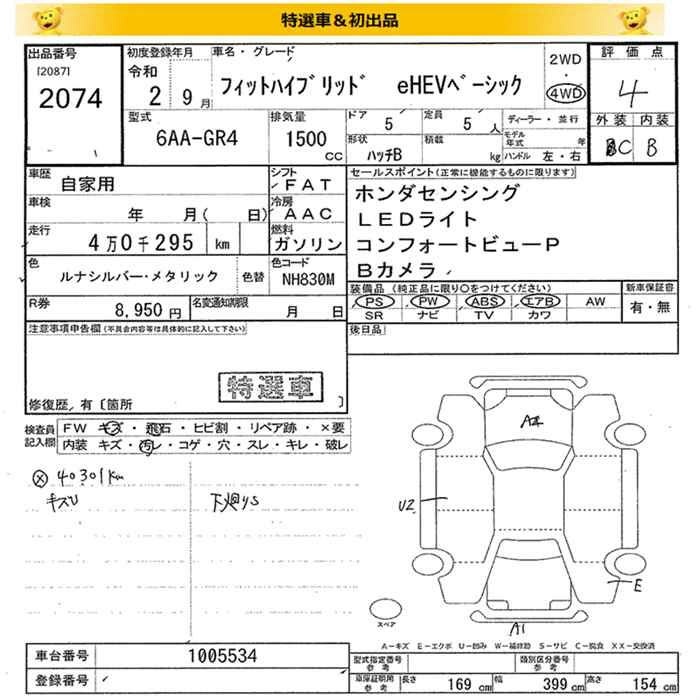 特選車＆初出品
出品番号
[2087]
2074
初度登録年月
令和
2 9月
車名・グレード
フィットハイブリッド eHEVベーシック
2WD
・
4WD
評価点
4
型式
6AA-GR4
排気量
1500
cc
ドア
5
定員
5 人
形状
ハッチB
積載
kg
ディーラー・並行
モデル年式 年
ハンドル 左・右
外装 内装
C B
車歴
自家用
シフト
FAT
車検
年 月( 日)
冷房
AAC
走行
4万0千295 km
燃料
ガソリン
色
ルナシルバー・メタリック
色替
色コード
NH830M
R券
8,950円
名変通知期限
月 日
セールスポイント(正常に機能するものに限ります)
ホンダセンシング
LEDライト
コンフォートビューP
Bカメラ
装備品 (純正品に限り○をつけてください)
PS PW ABS エアB AW
SR ナビ TV カワ
新車保証書
有・無
後日品
注意事項申告欄(不具合内容等は具体的に記入して下さい)
特選車
修復歴，有〔箇所 〕
検査員記入欄
FW キズ・飛石・ヒビ割・リペア跡・×要
内装 キズ・汚レ・コゲ・穴・スレ・キレ・破レ
ⓧ 40301km
キズU
下廻りS
A4
U2
E
A1
スペア
A－キズ E－エクボ U－凹み W－補修跡 S－サビ C－腐食 XX－交換済
車台番号
1005534
登録番号
型式指定番号 参考
類別区分番号 参考
車庫証明用 参考
長さ 169cm 幅 399cm 高さ 154cm